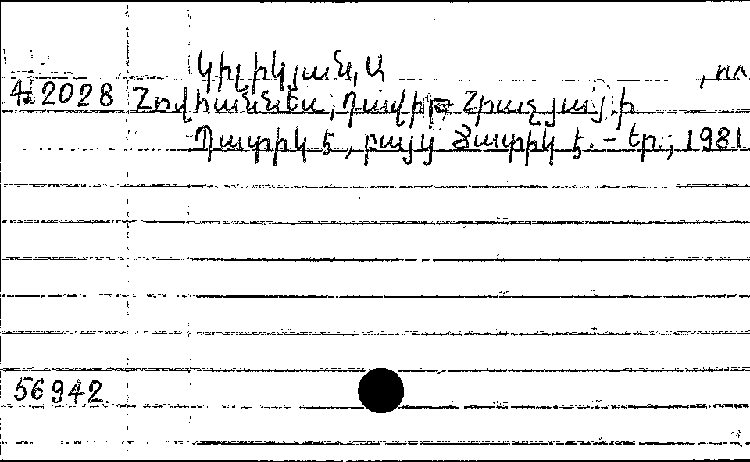 Կիլիկյան, Ա , ու
42028 Հովհաննես, Դավիթ Հրաչյայ.ի
Պատիկ է, բայց Ծաղիկ է. – Եր., 1981
56942